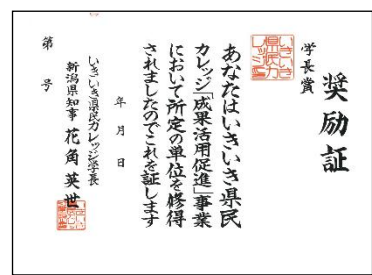 奨励証
学長賞
あなたはいきいき県民
カレッジ「成果活用促進」事業
において所定の単位を修得
されましたのでこれを証します
年 月 日
いきいき県民カレッジ学長
新潟県知事 花角英世
第 号